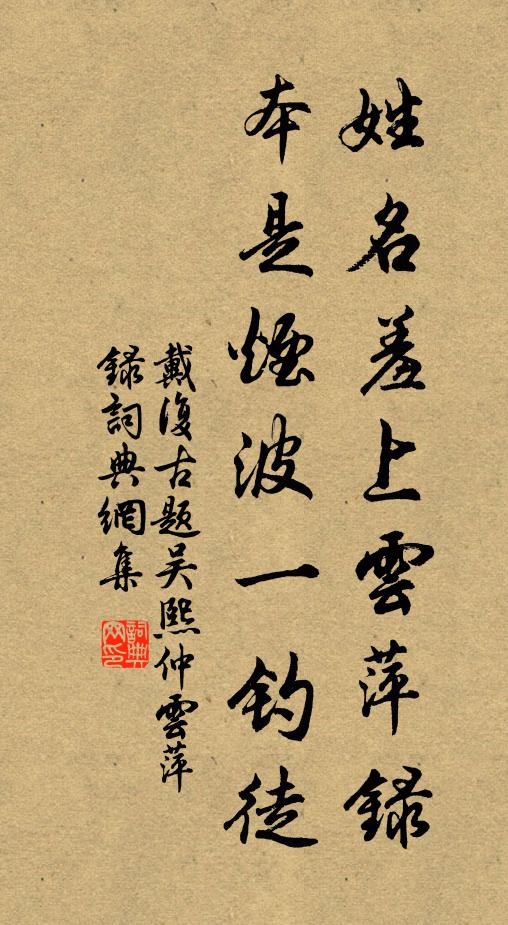 姓名羞上雲萍録
本是煙波一釣徒
戴復古題吴熙仲雲萍
録詞典網集
詞典网印